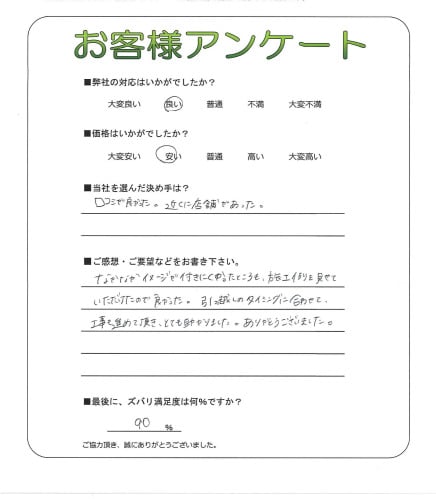 お客様アンケート
■弊社の対応はいかがでしたか？
大変良い 良い 普通 不満 大変不満
■価格はいかがでしたか？
大変安い 安い 普通 高い 大変高い
■当社を選んだ決め手は？
口コミが良かった。近くに店舗があった。
■ご感想・ご要望などをお書き下さい。
なかなかイメージが付きにくかったところも、施工例を見せて
いただけたので良かった。引っ越しのタイミングに合わせて、
工事を進めて頂き、とても助かりました。ありがとうございました。
■最後に、ズバリ満足度は何%ですか？
90 %
ご協力頂き、誠にありがとうございました。